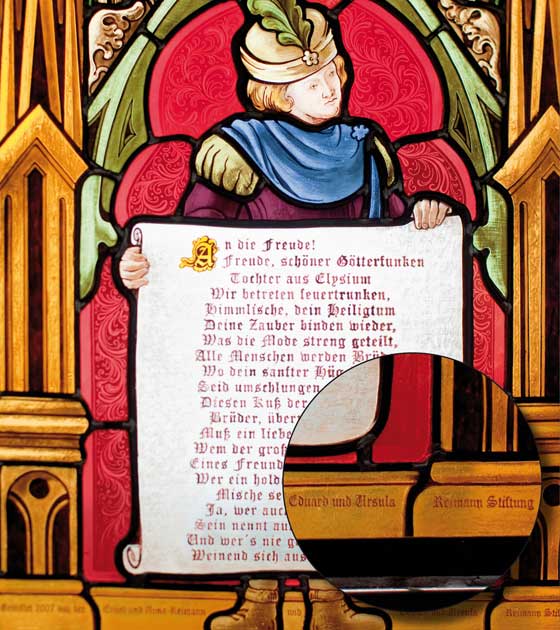 An die Freude!
Freude, schöner Götterfunken
Tochter aus Elysium
Wir betreten feuertrunken,
Himmlische, dein Heiligtum
Deine Zauber binden wieder,
Was die Mode streng geteilt,
Alle Menschen werden
Wo dein sanfter
Seid umschlungen
Diesen Kuß der
Brüder,
Muß ein
Wem der
Eines
Wer ein
Mische
Ja, wer
Sein nennt
Und wer's nie
Weinend sich aus
Eduard und Ursula Reimann Stiftung
2007 und